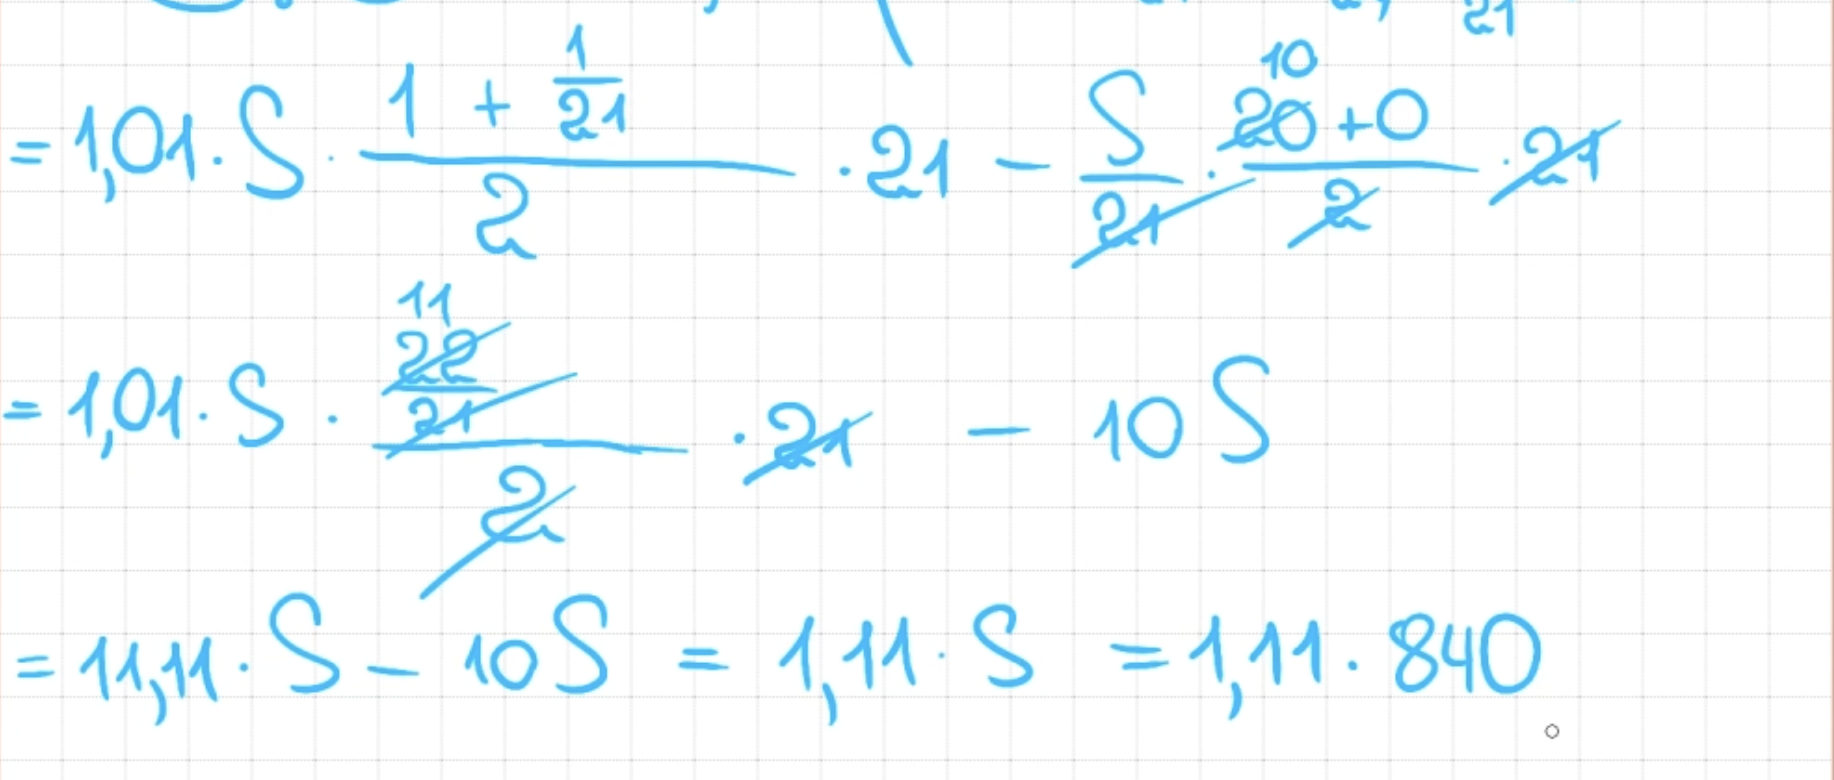 21
= 1,01 · S · (1 + 1/21)/2 · 21 − S/21 · (20 + 0)/2 · 21 10
= 1,01 · S · (22/21)/2 · 21 − 10S 11
= 11,11 · S − 10S = 1,11 · S = 1,11 · 840